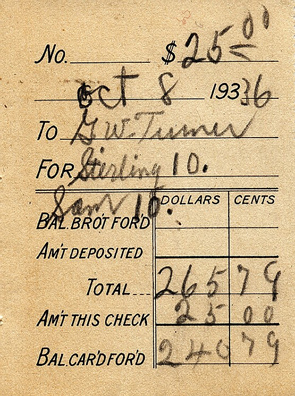 No. $ 25 00
Oct 8 19336
To G W Turner
For Sterling 10.
Sam 10.
DOLLARS CENTS
BAL. BRO'T FORD
AM'T DEPOSITED
TOTAL 265 79
AM'T THIS CHECK 25 00
BAL. CAR'D FOR'D 240 79